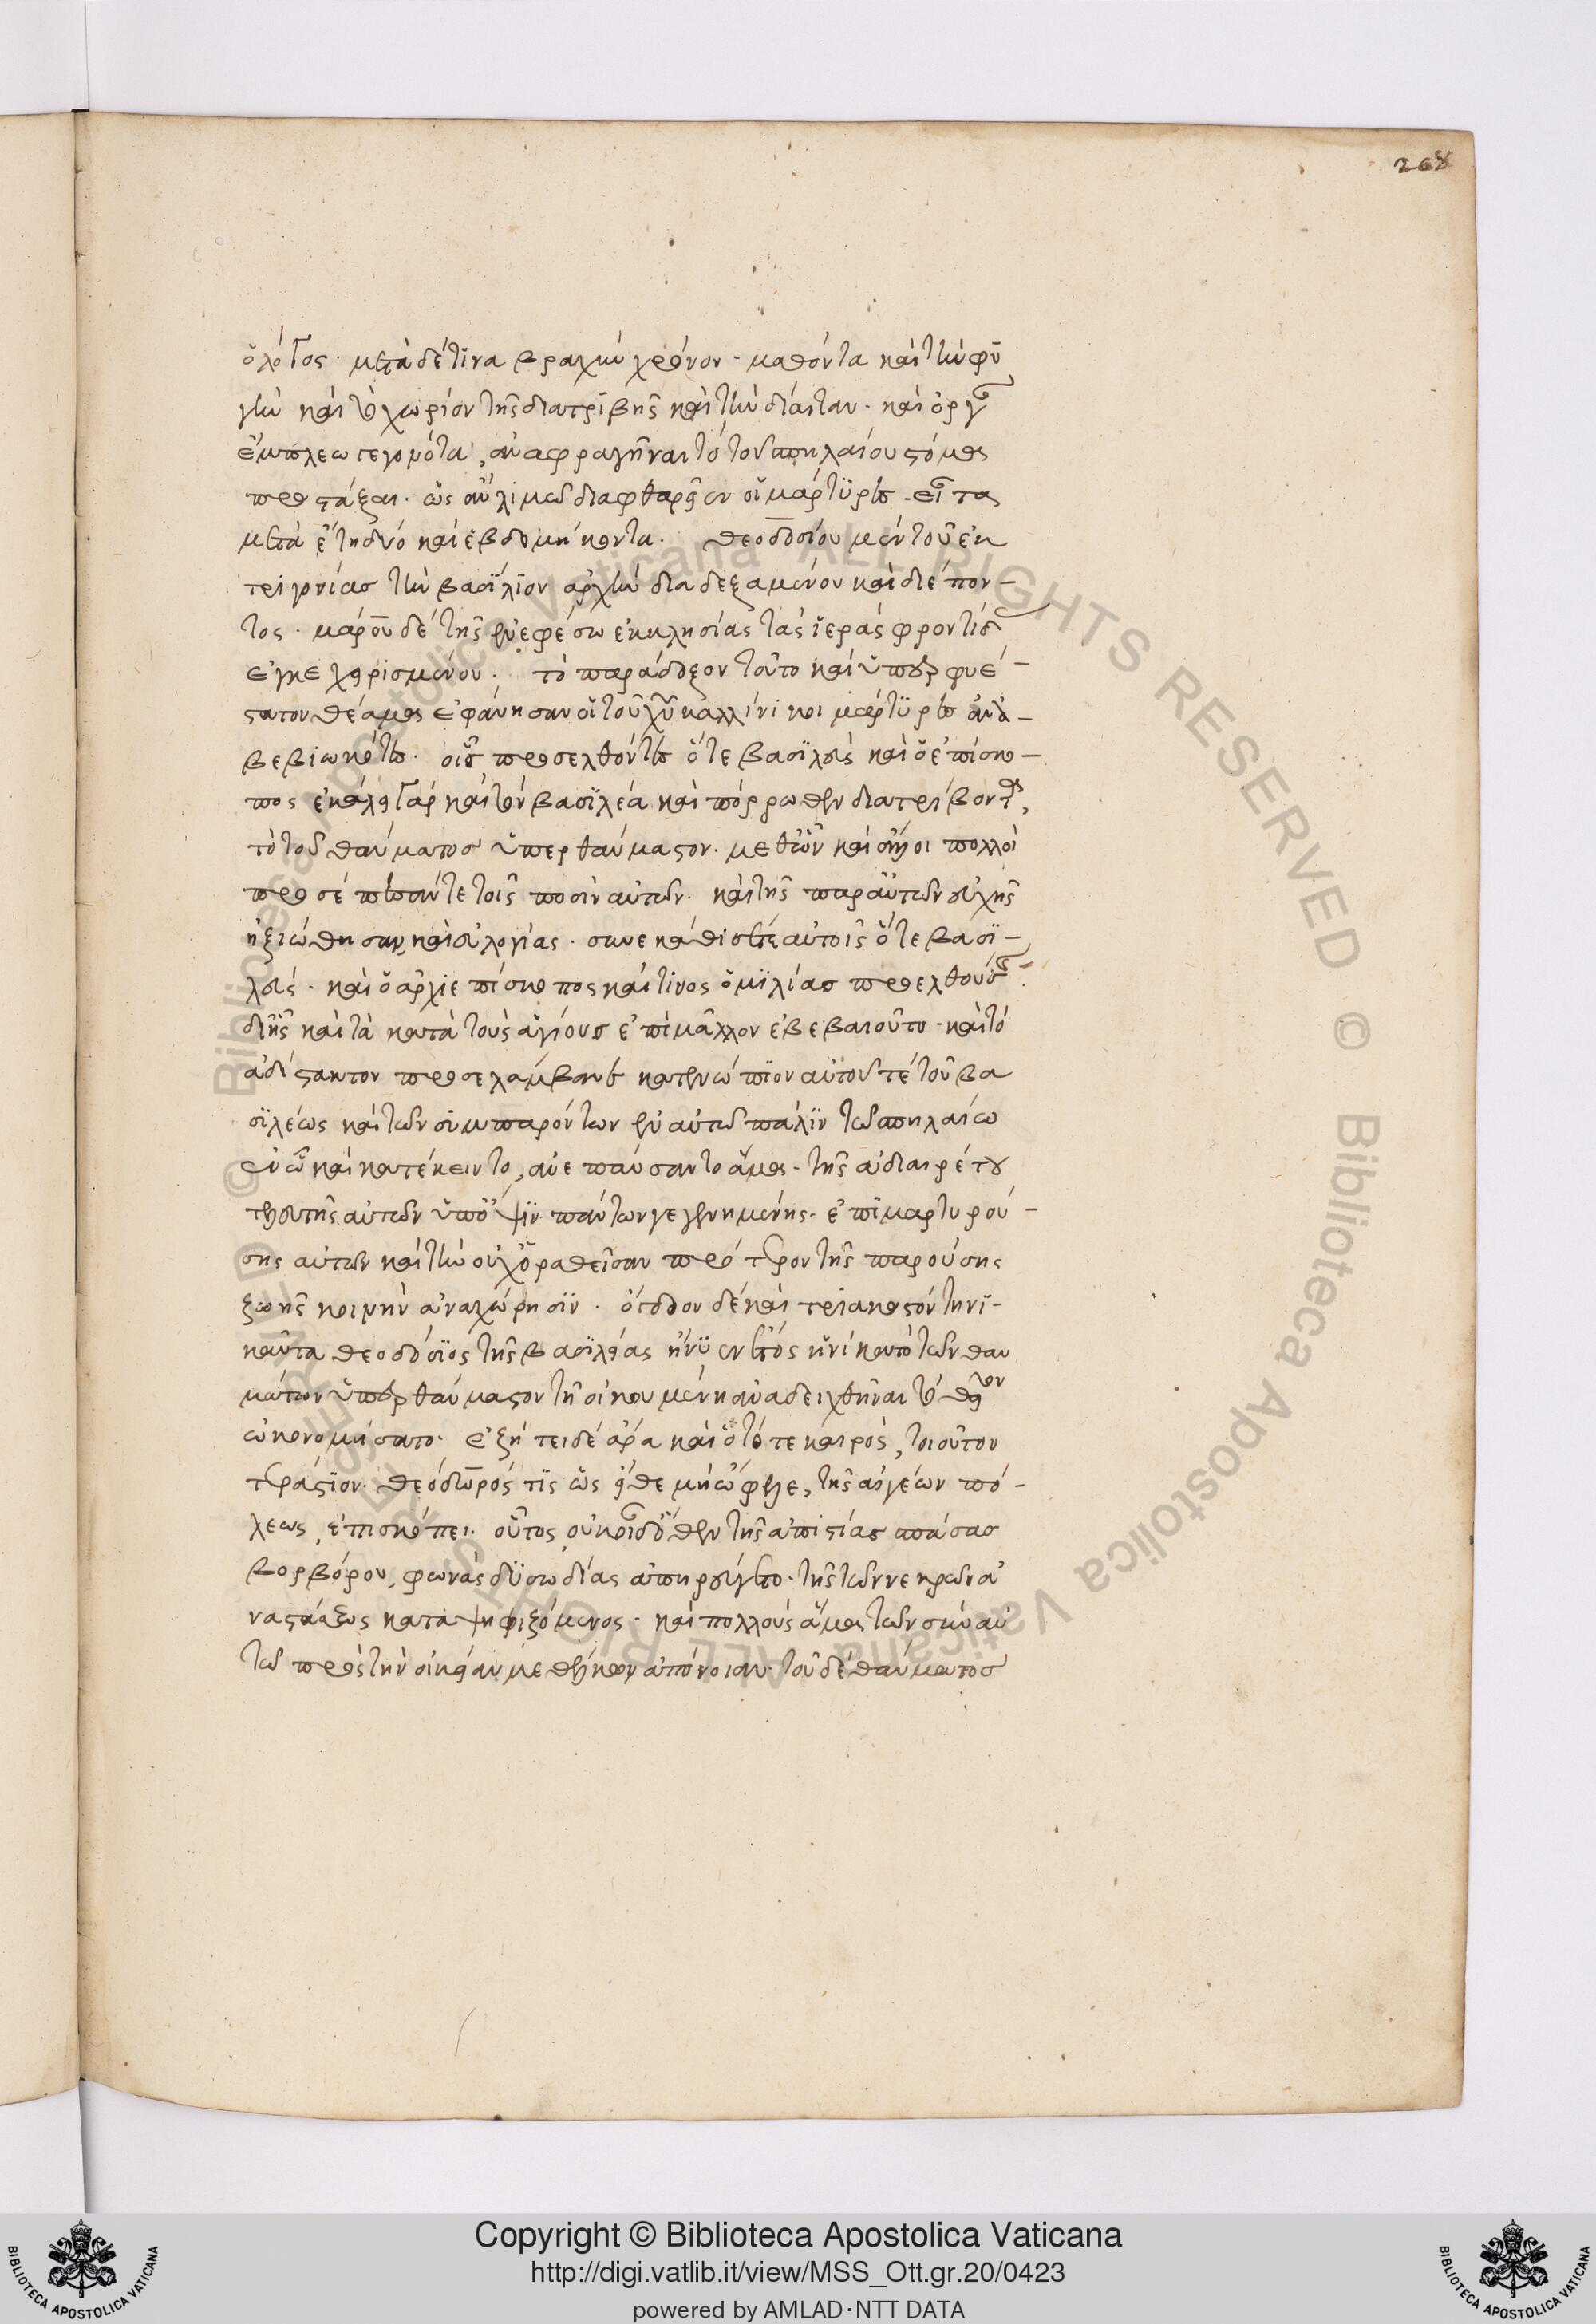 268
ὁ λόγος· μετὰ δέ τινα βραχὺν χρόνον· μαθόντα καὶ τὴν φυ
γὴν καὶ τὸ χωρίον τῆς διατριβῆς καὶ τὴν δίαιταν· καὶ ὀργῆς
ἔμπλεω γεγονότα, ἀναφραγῆναι τὸ τοῦ σπηλαίου στόμα
προστάξαι· ὡς ἂν λιμῶ διαφθαρεῖεν οἱ μάρτυρες· εἶτα
μετὰ ἔτη δύο καὶ ἑβδομήκοντα. Θεοδοσίου μὲν τοῦ ἐκ
τριγονίας τὴν βασίλειον ἀρχὴν διαδεξαμένου καὶ διέπον-
τος· μάρου δὲ τῆς ἐν ἐφέσω ἐκκλησίας τὰς ἱερὰς φροντίδας
ἐγκεχειρισμένου. τὸ παράδοξον τοῦτο καὶ ὑπερφυέ-
στατον θέαμα ἐφάνησαν οἱ τοῦ χῦ καλλίνικοι μάρτυρες ἀνα-
βεβιωκότες. οἷς προσελθόντες ὅ τε βασιλεὺς καὶ ὁ ἐπίσκο-
πος ἐκάλει γὰρ καὶ τὸν βασιλέα καὶ πόρρωθεν διατρίβοντα,
τὸ τοῦ θαύματος ὑπερθαύμαστον. μεθ' ὧν καὶ ἄλλοι πολλοὶ
προσέπεσάν τε τοῖς ποσὶν αὐτῶν. καὶ τῆς παρ' αὐτῶν εὐχῆς
ἠξιώθησαν, καὶ εὐλογίας. συνεκάθιστό τε αὐτοῖς ὅ τε βασι-
λεύς. καὶ ὁ ἀρχιεπίσκοπος καί τινος ὁμιλίας προελθούσης
δι' ἧς καὶ τὰ κατὰ τοὺς ἁγίους ἐπὶ μᾶλλον ἐβεβαιοῦτο· καὶ τὸ
ἀδίστακτον προσελάμβανε κατενώπιον αὐτοῦ τε τοῦ βα
σιλέως καὶ τῶν συμπαρόντων ἐν αὐτῶ πάλιν τῶ σπηλαίω
ἐν ὧ καὶ κατέκειντο, ἀνεπαύσαντο ἅμα. τῆς ἀδιαιρέτου
τελευτῆς αὐτῶν ὑπ' ὄψιν πάντων γεγενημένης. ἐπιμαρτυρού-
σης αὐτῶν καὶ τὴν οὐχ ὁραθεῖσαν πρότερον τῆς παρούσης
ζωῆς κοινὴν ἀναχώρησιν. ὄγδοον δὲ καὶ τριακοστὸν τηνι-
καῦτα θεοδόσιος τῆς βασιλείας ἤνυεν ἔτος ἡνίκα τὸ τῶν θαυ
μάτων ὑπερθαύμαστον τῆ οἰκουμένη ἀναδειχθῆναι τὸ θεῖον
ὠκονομήσατο. ἐξήτει δὲ ἄρα καὶ ὁ τότε καιρὸς, τοιοῦτον
τεράστιον. θεόδωρός τις ὡς εἴθε μὴ ὤφειλε, τῆς αἰγέων πό-
λεως, ἐπισκόπει. οὗτος οὐκ οἶδ' ὅθεν τῆς ἀπιστίας σπάσας
βορβόρου, φωνὰς δυσωδίας ἀπηρεύγετο. τῆς τῶν νεκρῶν ἀ
ναστάσεως καταψηφιζόμενος. καὶ πολλοὺς ἅμα τῶν σὺν αὐ
τῶ πρὸς τὴν οἰκείαν μεθεῖλκεν ἀπόνοιαν. τοῦ δὲ θαύματος
Copyright © Biblioteca Apostolica Vaticana
http://digi.vatlib.it/view/MSS_Ott.gr.20/0423
powered by AMLAD·NTT DATA